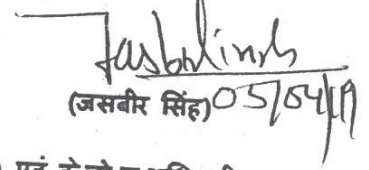 Jasbir Singh
(जसबीर सिंह) 05/04/19